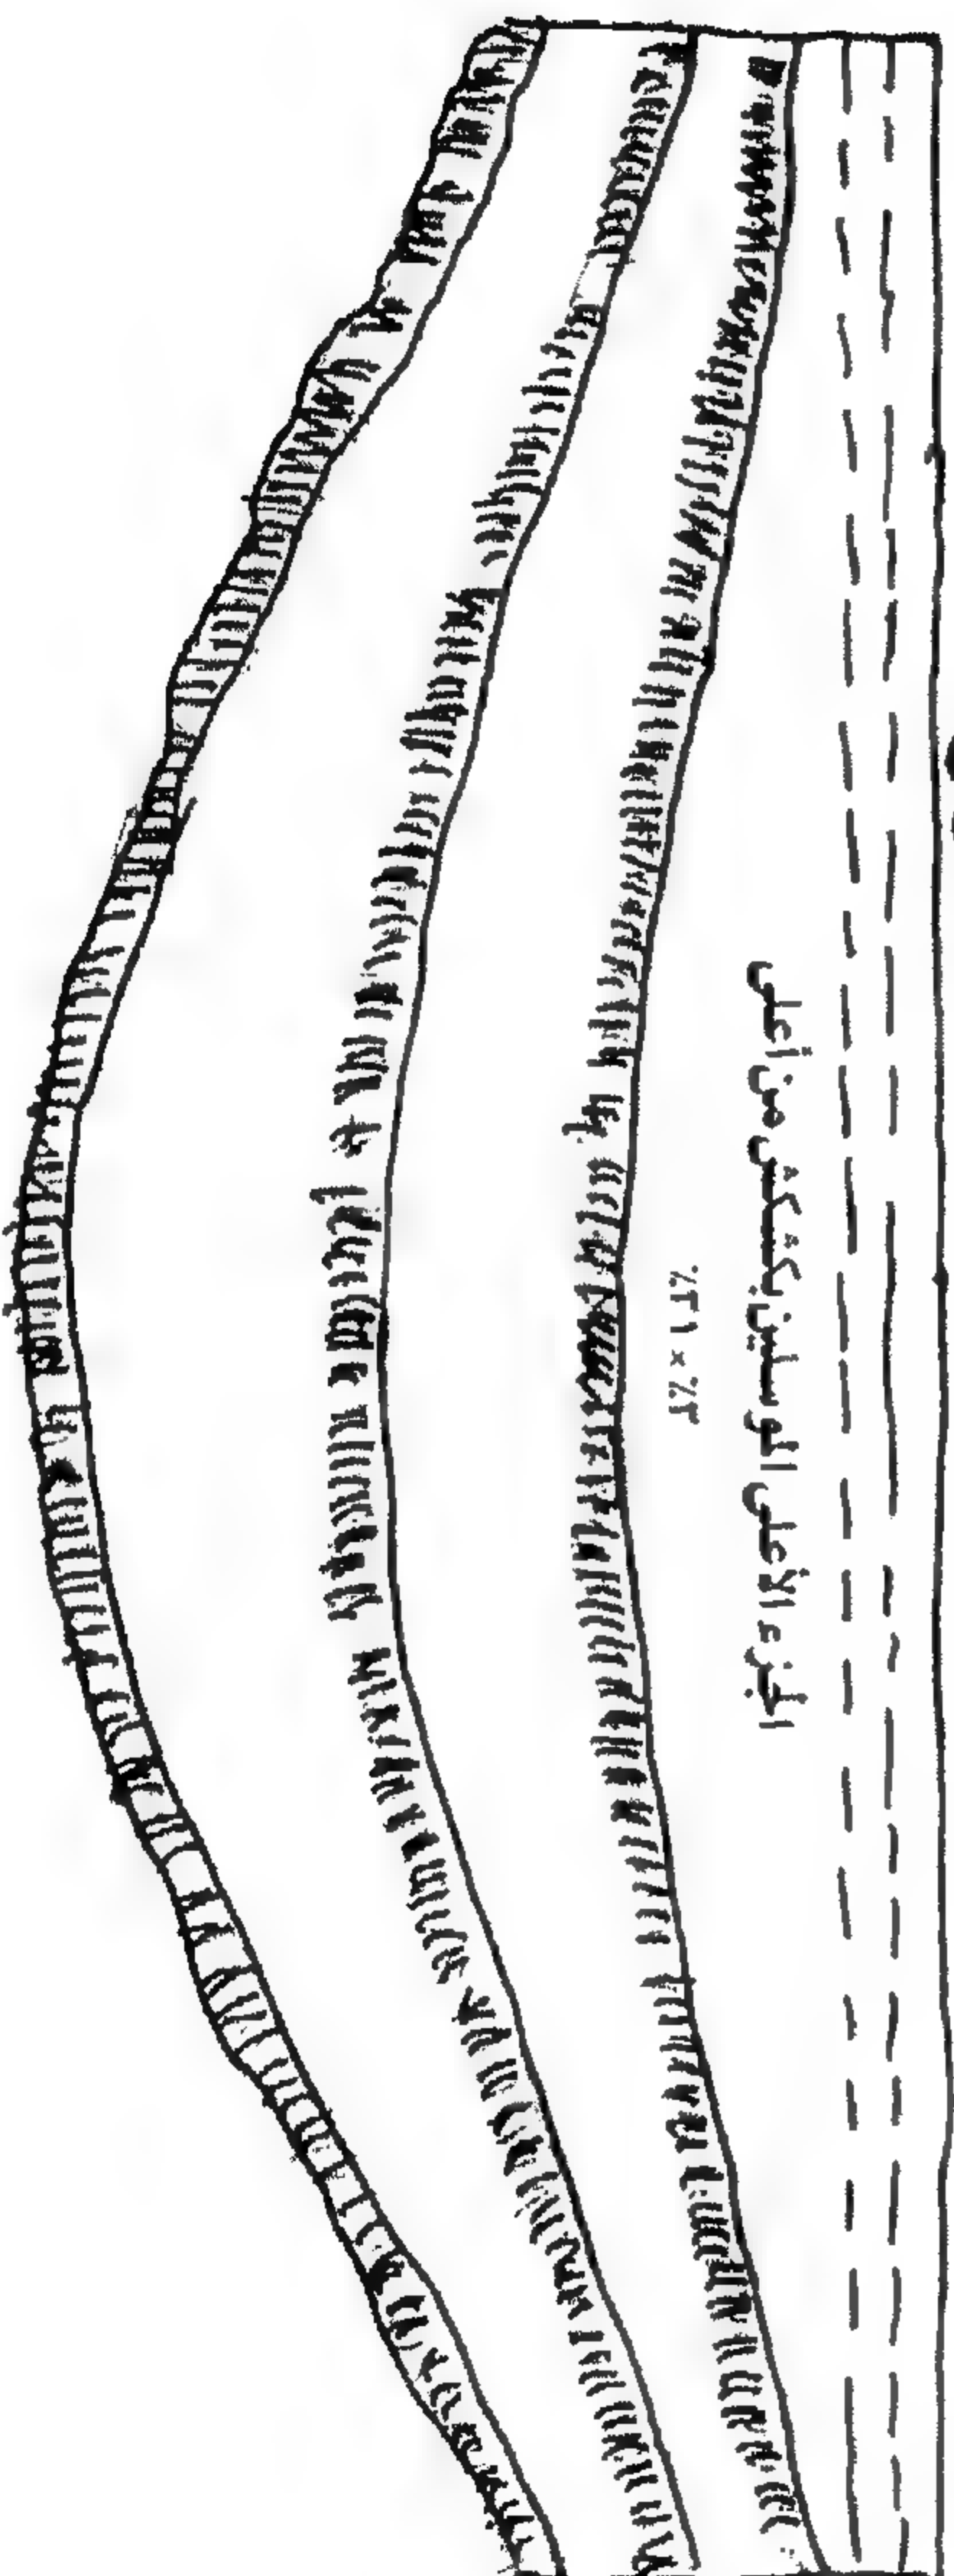 الجزء الأعلى الموسلين يكشكش من أعلى